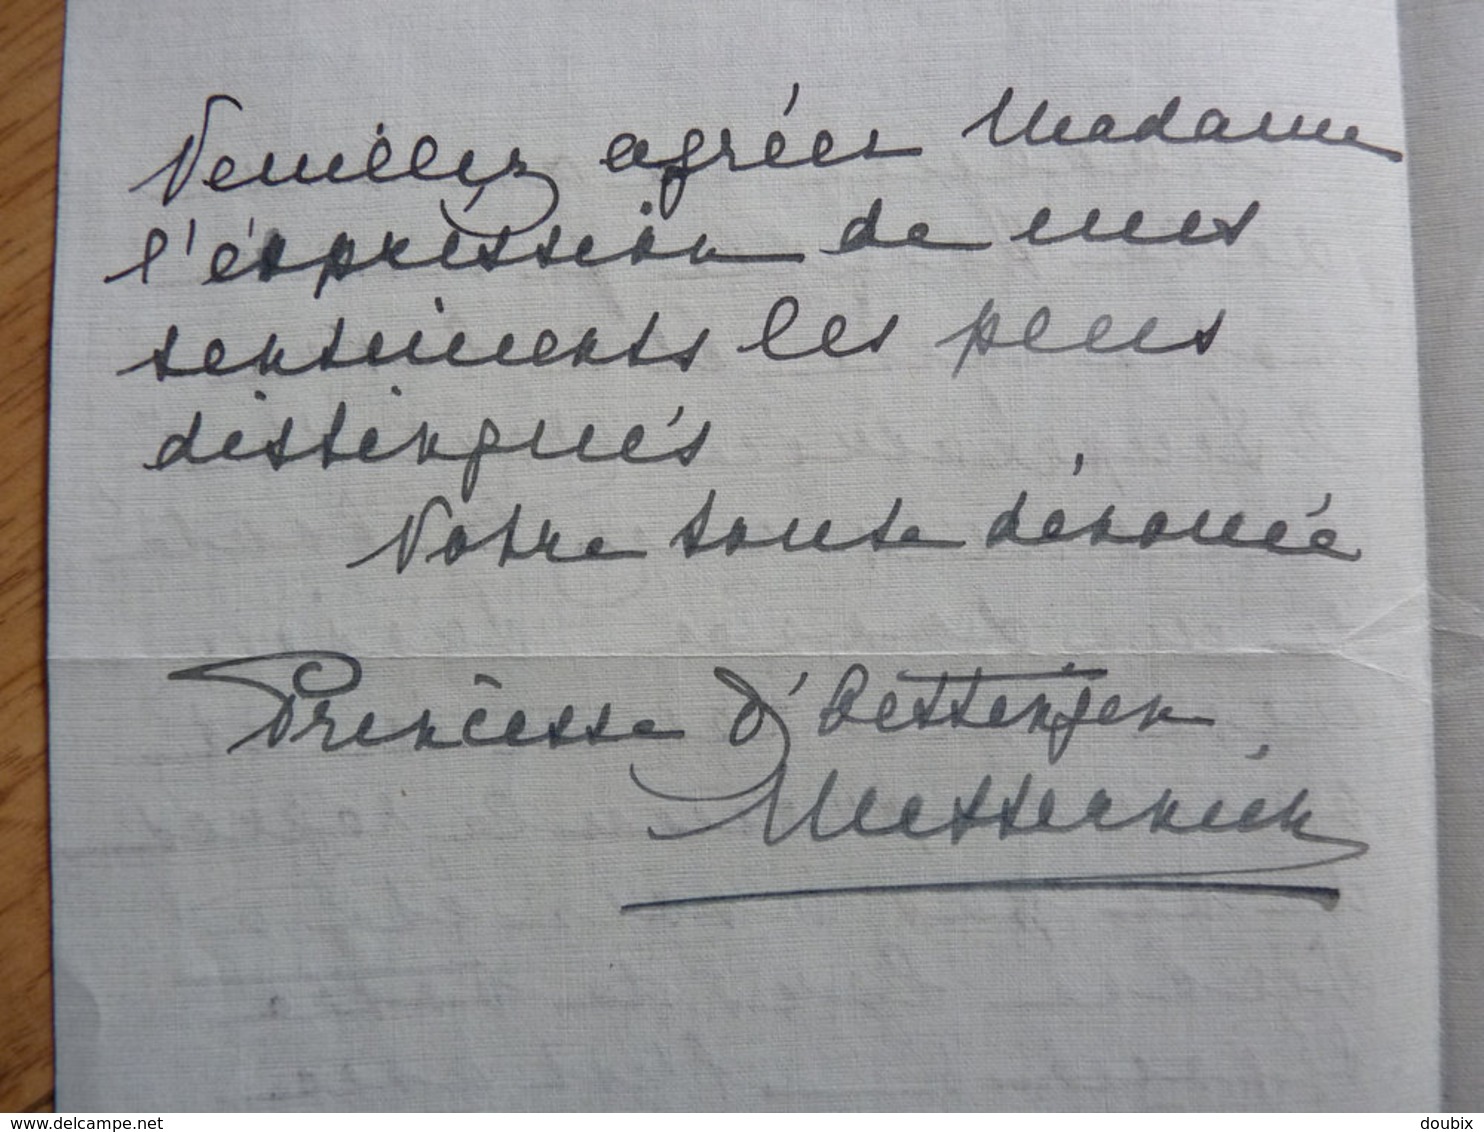 Veuillez agréer Madame
l'expression de mes
sentiments les plus
distingués
Votre toute dévouée
Princesse d'Oettengen
Metternich
delcampe.net
doubix